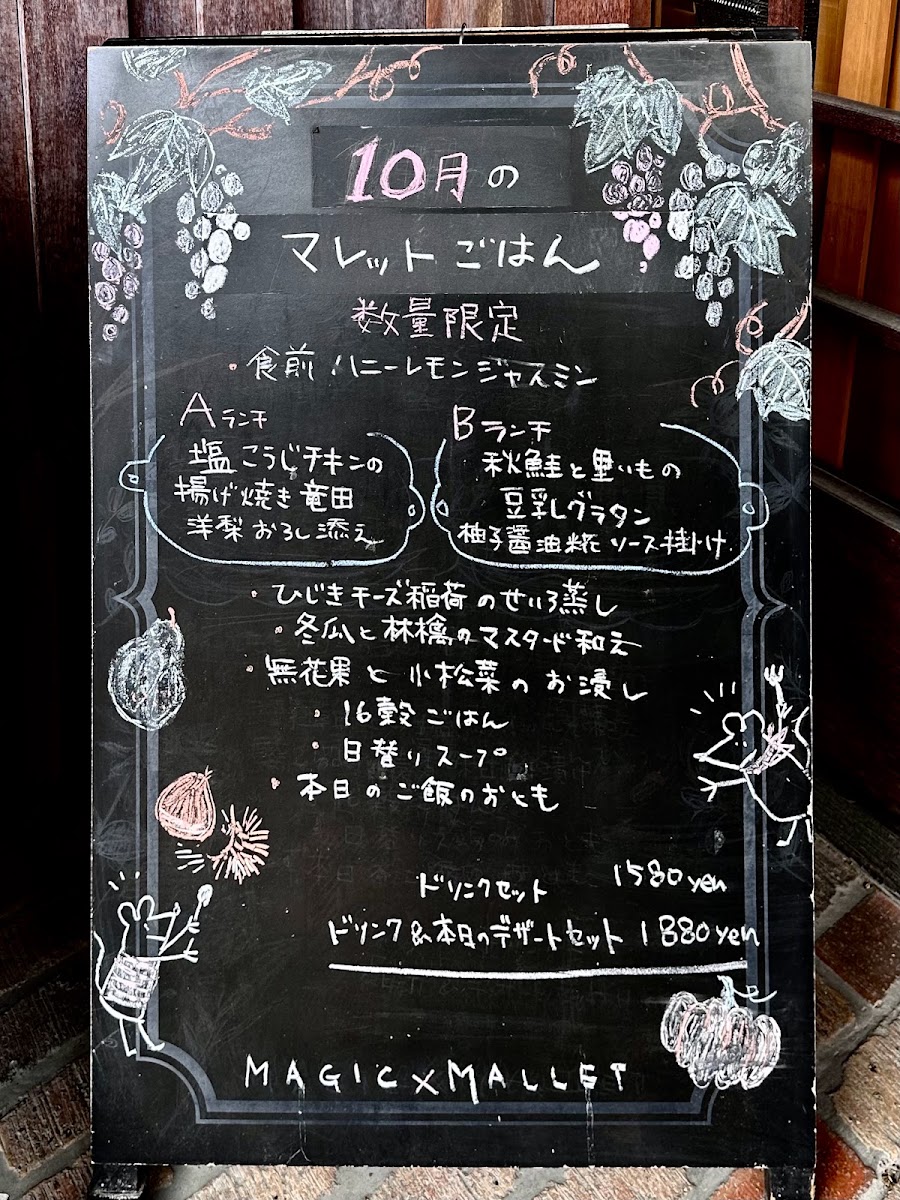 10月の
マレットごはん
数量限定
・食前ハニーレモンジャスミン
Aランチ
塩こうじチキンの
揚げ焼き竜田
洋梨おろし添え
Bランチ
秋鮭と里いもの
豆乳グラタン
柚子醤油糀ソース掛け
・ひじきチーズ稲荷のせいろ蒸し
・冬瓜と林檎のマスタード和え
・無花果と小松菜のお浸し
・16穀ごはん
・日替りスープ
・本日のご飯のおとも
ドリンクセット 1580yen
ドリンク&本日のデザートセット 1880yen
MAGIC×MALLET